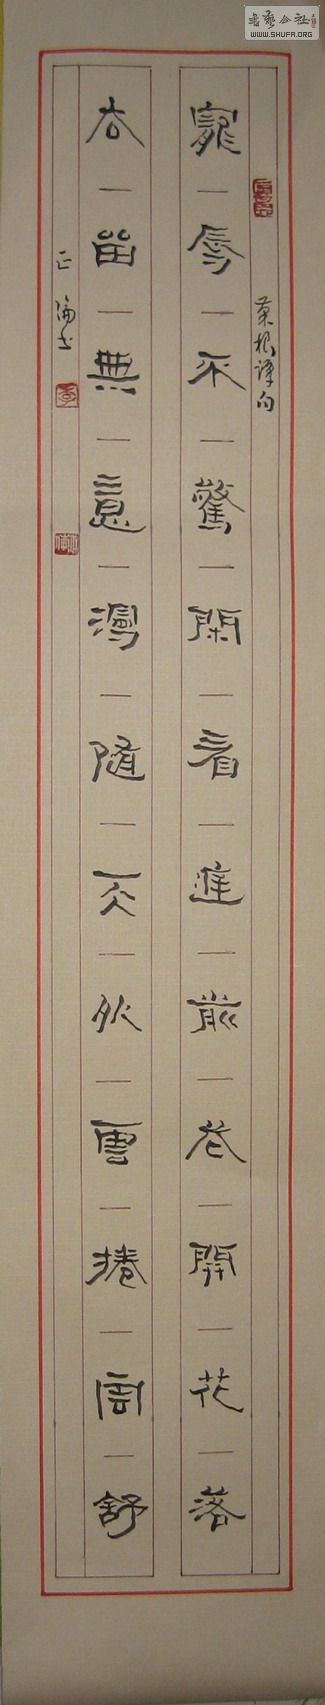 菜根譚句
寵辱不驚閑看庭前花開花落
去留無意漫隨天外雲捲雲舒
正倫书
书艺公社
WWW.SHUFA.ORG